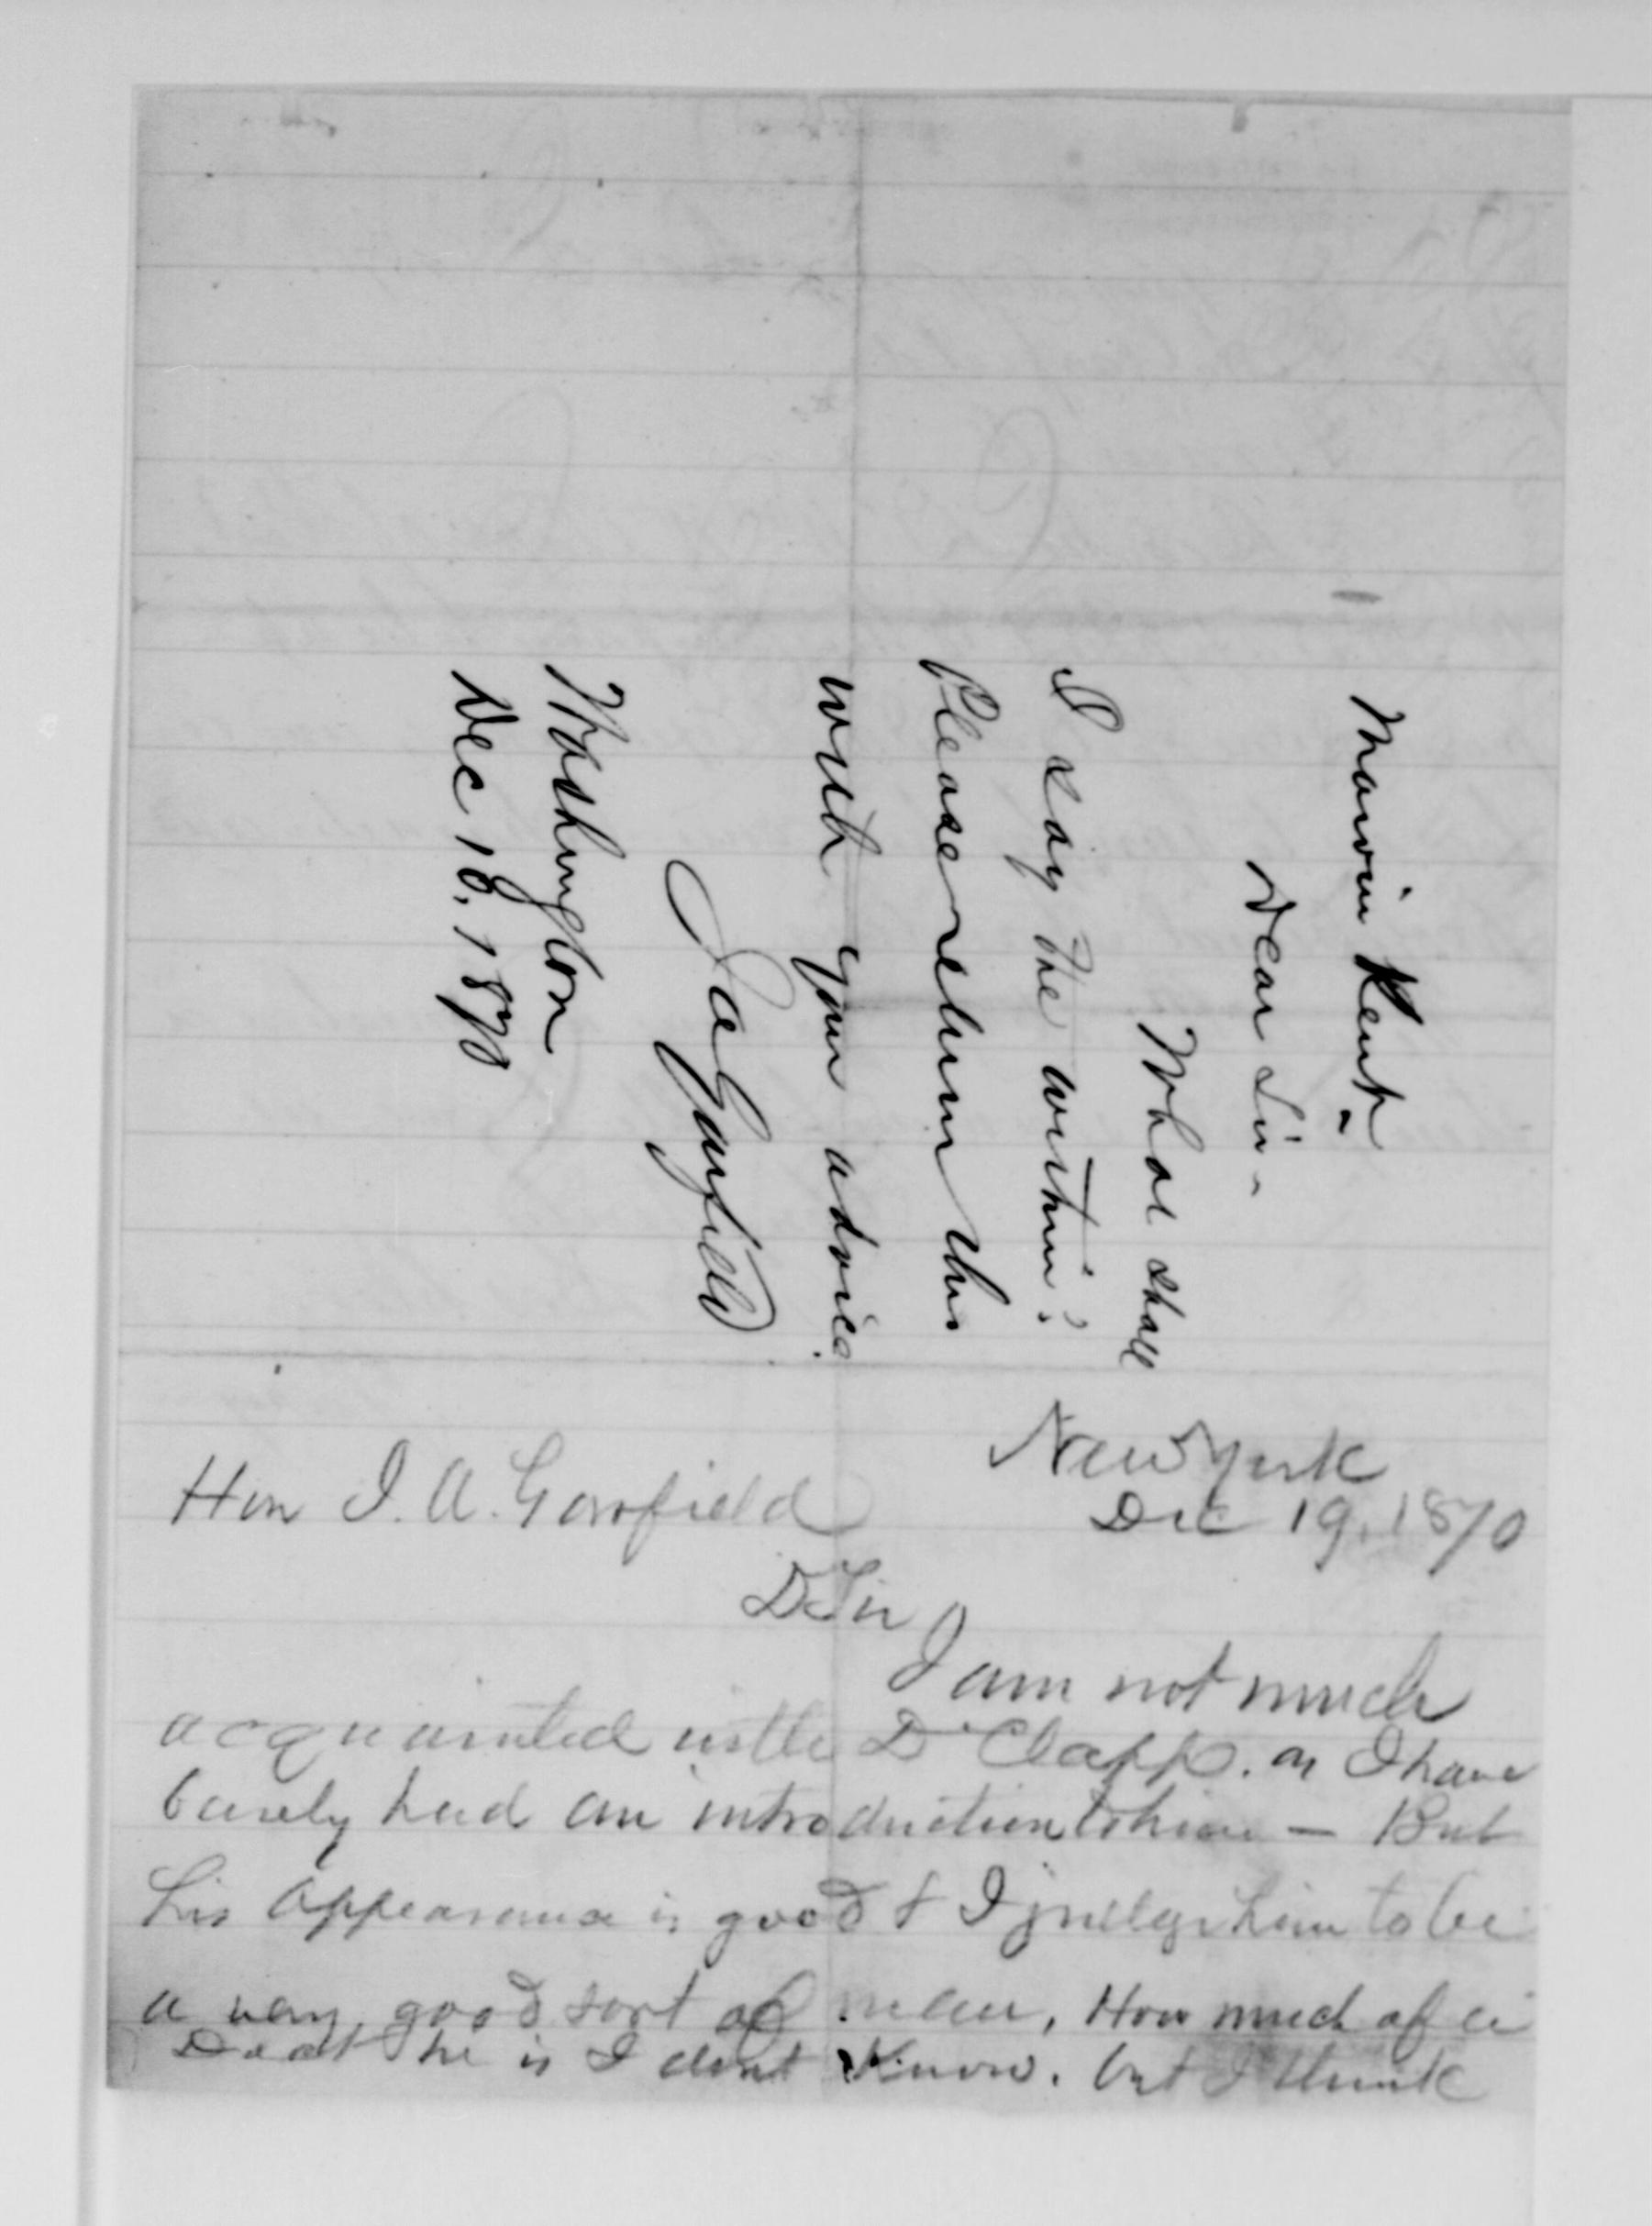 Marvin Kent -
Dear Sir -
What shall
I say the within?
Please return this
with your advice.
J A Garfield
Washington
Dec 16. 1870
New York
Dec 19. 1870
Hon J. A. Garfield
D Sir
I am not much
acquainted with Dr Clapp. as I have
barely had an introduction to him — But
his appearance is good & I judge him to be
a very good sort of man, How much of a
he is I dont Know. but I think